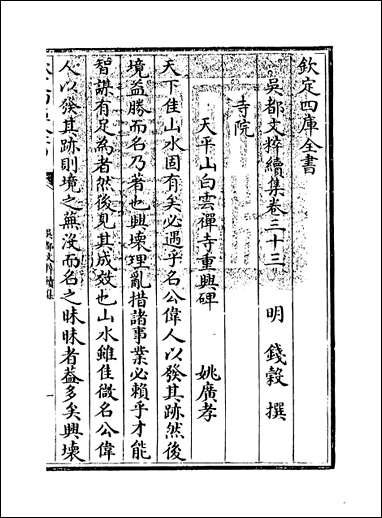 欽定四庫全書
吳都文粹續集卷三十三
明 錢穀 撰
寺院
天平山白雲禪寺重興碑 姚廣孝
天下佳山水固有矣必遇乎名公偉人以發其跡然後
境益勝而名乃著也興壞理亂措諸事業必賴乎才能
智謀有足為者然後見其成效也山水雖佳微名公偉
人以發其跡則境之無沒而名之昧昧者葢多矣興壞
吳都文粹續集